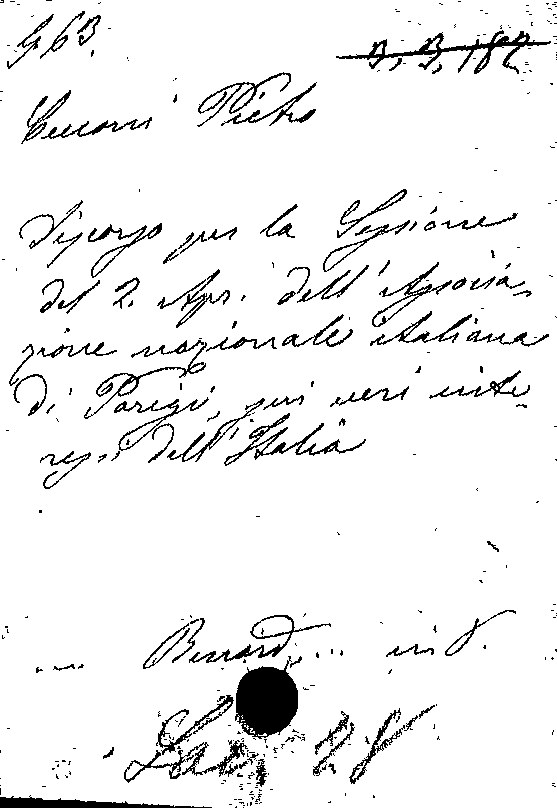 G 63.
3, 3, 182
Cerroni Pietro
Discorso per la Sessione
del 2. Apr. dell'Associa-
zione nazionale italiana
di Parigi, sui veri inte-
ressi dell'Italia
.... Benard.... in 8.
28